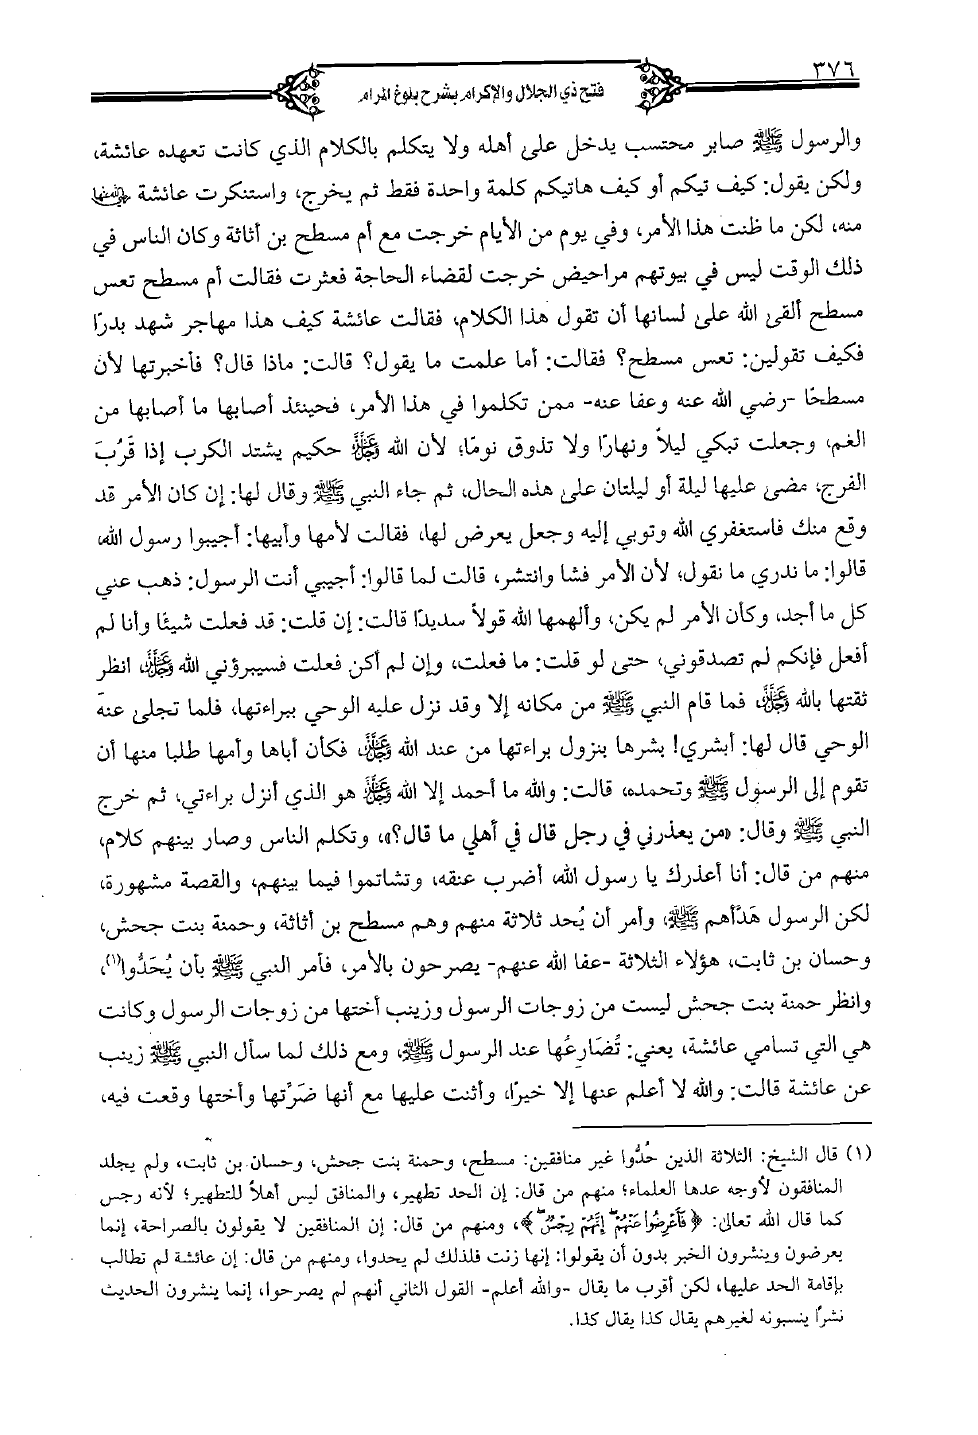 ٣٧٦
فتح ذي الجلال والإكرام بشرح بلوغ المرام
والرسول ﷺ صابر محتسب يدخل على أهله ولا يتكلم بالكلام الذي كانت تعهده عائشة،
ولكن يقول: كيف تيكم أو كيف هاتيكم كلمة واحدة فقط ثم يخرج، واستنكرت عائشة رضي الله عنها
منه، لكن ما ظنت هذا الأمر، وفي يوم من الأيام خرجت مع أم مسطح بن أثاثة وكان الناس في
ذلك الوقت ليس في بيوتهم مراحيض خرجت لقضاء الحاجة فعثرت فقالت أم مسطح تعس
مسطح ألقى الله على لسانها أن تقول هذا الكلام، فقالت عائشة كيف هذا مهاجر شهد بدرًا
فكيف تقولين: تعس مسطح؟ فقالت: أما علمت ما يقول؟ قالت: ماذا قال؟ فأخبرتها لأن
مسطحًا -رضي الله عنه وعفا عنه- ممن تكلموا في هذا الأمر، فحينئذ أصابها ما أصابها من
الغم، وجعلت تبكي ليلاً ونهارًا ولا تذوق نومًا؛ لأن الله عَزَّوَجَلَّ حكيم يشتد الكرب إذا قَرُبَ
الفرج، مضى عليها ليلة أو ليلتان على هذه الحال، ثم جاء النبي ﷺ وقال لها: إن كان الأمر قد
وقع منك فاستغفري الله وتوبي إليه وجعل يعرض لها، فقالت لأمها وأبيها: أجيبوا رسول الله،
قالوا: ما ندري ما نقول؛ لأن الأمر فشا وانتشر، قالت لما قالوا: أجيبي أنت الرسول: ذهب عني
كل ما أجد، وكأن الأمر لم يكن، وألهمها الله قولاً سديدًا قالت: إن قلت: قد فعلت شيئًا وأنا لم
أفعل فإنكم لم تصدقوني، حتى لو قلت: ما فعلت، وإن لم أكن فعلت فسيبرؤني الله عَزَّوَجَلَّ، انظر
ثقتها بالله عَزَّوَجَلَّ، فما قام النبي ﷺ من مكانه إلا وقد نزل عليه الوحي ببراءتها، فلما تجلى عنه
الوحي قال لها: أبشري! بشرها بنزول براءتها من عند الله عَزَّوَجَلَّ، فكأن أباها وأمها طلبا منها أن
تقوم إلى الرسول ﷺ وتحمده، قالت: والله ما أحمد إلا الله عَزَّوَجَلَّ هو الذي أنزل براءتي، ثم خرج
النبي ﷺ وقال: «من يعذرني في رجل قال في أهلي ما قال؟»، وتكلم الناس وصار بينهم كلام،
منهم من قال: أنا أعذرك يا رسول الله، أضرب عنقه، وتشاتموا فيما بينهم، والقصة مشهورة،
لكن الرسول هَدَّأهم ﷺ، وأمر أن يُحد ثلاثة منهم وهم مسطح بن أثاثة، وحمنة بنت جحش،
وحسان بن ثابت، هؤلاء الثلاثة -عفا الله عنهم- يصرحون بالأمر، فأمر النبي ﷺ بأن يُحَدُّوا(١)،
وانظر حمنة بنت جحش ليست من زوجات الرسول وزينب أختها من زوجات الرسول وكانت
هي التي تسامي عائشة، يعني: تُضَارِعُها عند الرسول ﷺ، ومع ذلك لما سأل النبي ﷺ زينب
عن عائشة قالت: والله لا أعلم عنها إلا خيرًا، وأثنت عليها مع أنها ضَرَّتها وأختها وقعت فيه،
(١) قال الشيخ: الثلاثة الذين حُدُّوا غير منافقين: مسطح، وحمنة بنت جحش، وحسان بن ثابت، ولم يجلد
المنافقون لأوجه عدها العلماء؛ منهم من قال: إن الحد تطهير، والمنافق ليس أهلاً للتطهير؛ لأنه رجس
كما قال الله تعالى: ﴿فَأَعْرِضُوا عَنْهُمْ إِنَّهُمْ رِجْسٌ﴾، ومنهم من قال: إن المنافقين لا يقولون بالصراحة، إنما
يعرضون وينشرون الخبر بدون أن يقولوا: إنها زنت فلذلك لم يحدوا، ومنهم من قال: إن عائشة لم تطالب
بإقامة الحد عليها، لكن أقرب ما يقال -والله أعلم- القول الثاني أنهم لم يصرحوا، إنما ينشرون الحديث
نشرًا ينسبونه لغيرهم يقال كذا يقال كذا.